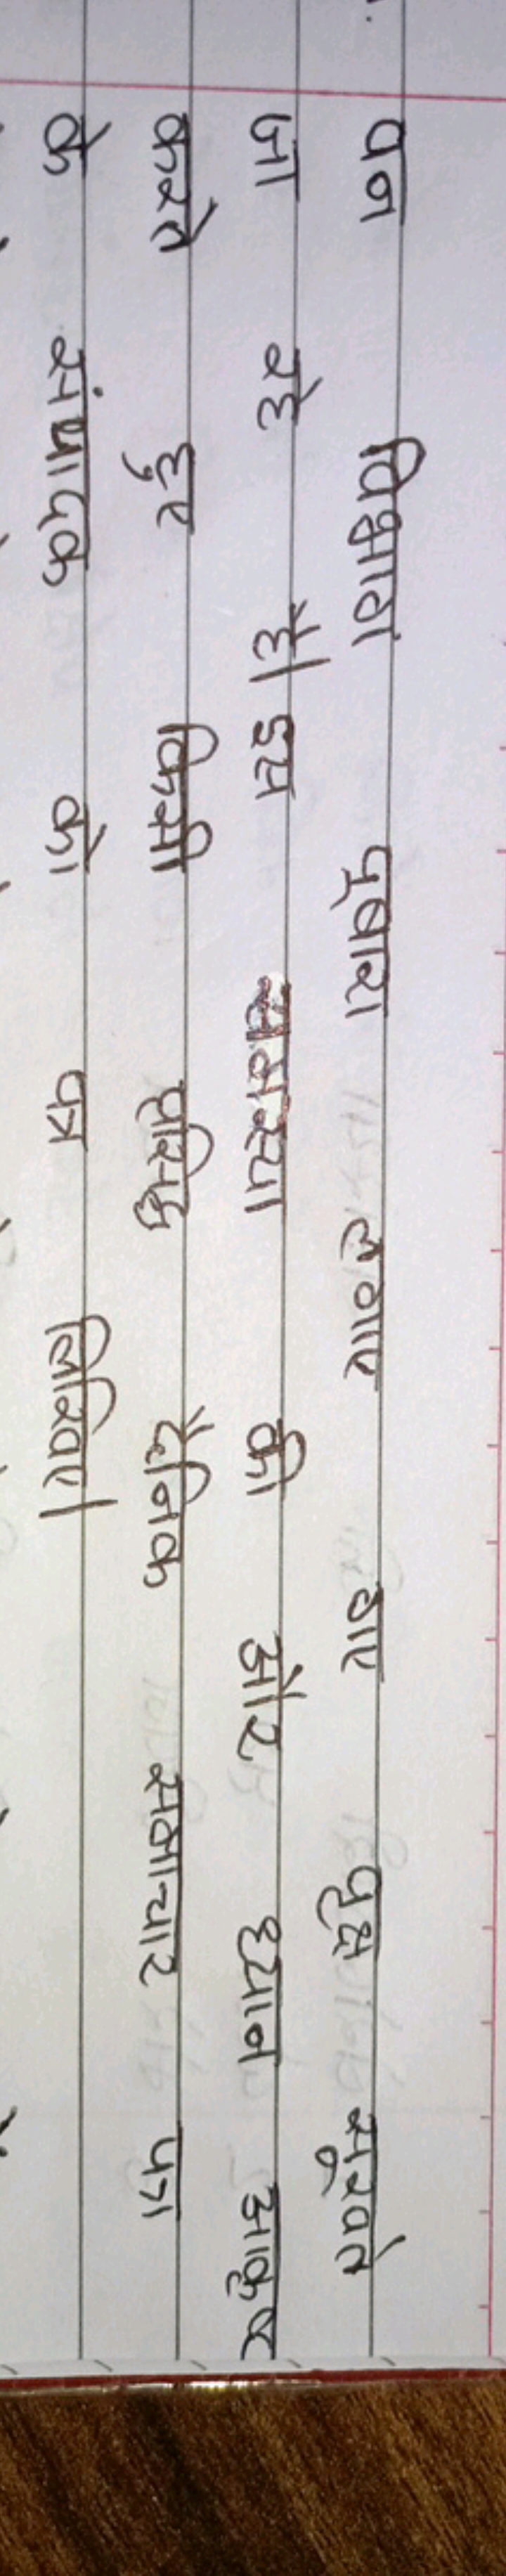 वन विभाग द्वारा लगाए गए वृक्ष सूखते
जा रहे हैं। इस समस्या की ओर ध्यान आकृष्ट
करते हुए किसी प्रसिद्ध दैनिक समाचार पत्र
के संपादक को पत्र लिखिए।